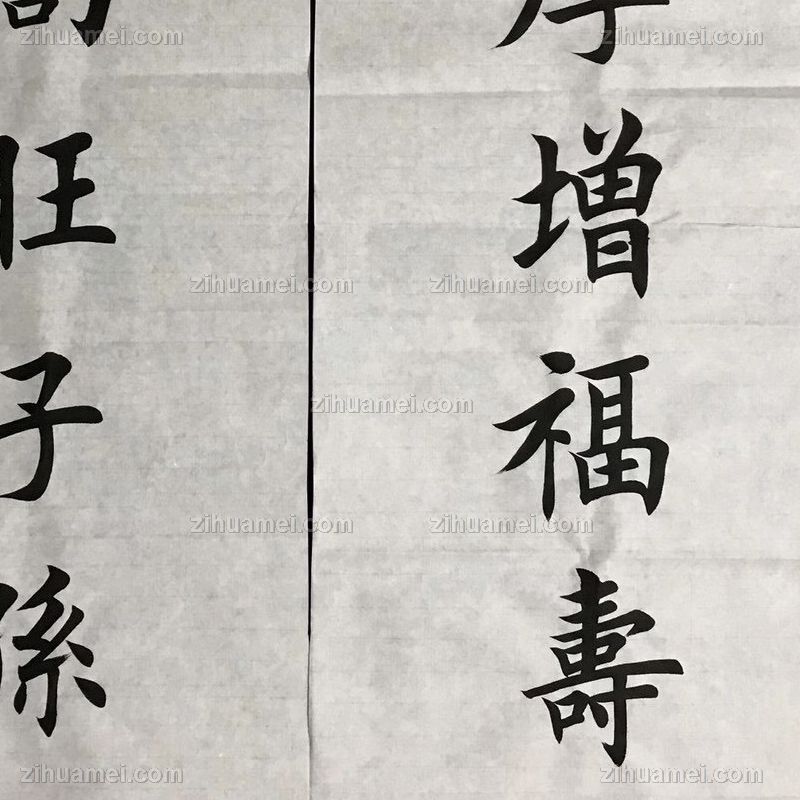 增福壽
旺子孫
zihuamei.com
zihuamei.com
zihuamei.com
zihuamei.com
zihuamei.com
zihuamei.com
zihuamei.com
zihuamei.com
zihuamei.com